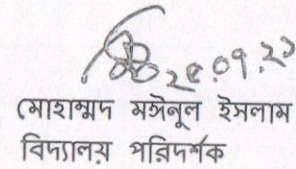 ২৫.০৭.২১
মোহাম্মদ মঈনুল ইসলাম
বিদ্যালয় পরিদর্শক